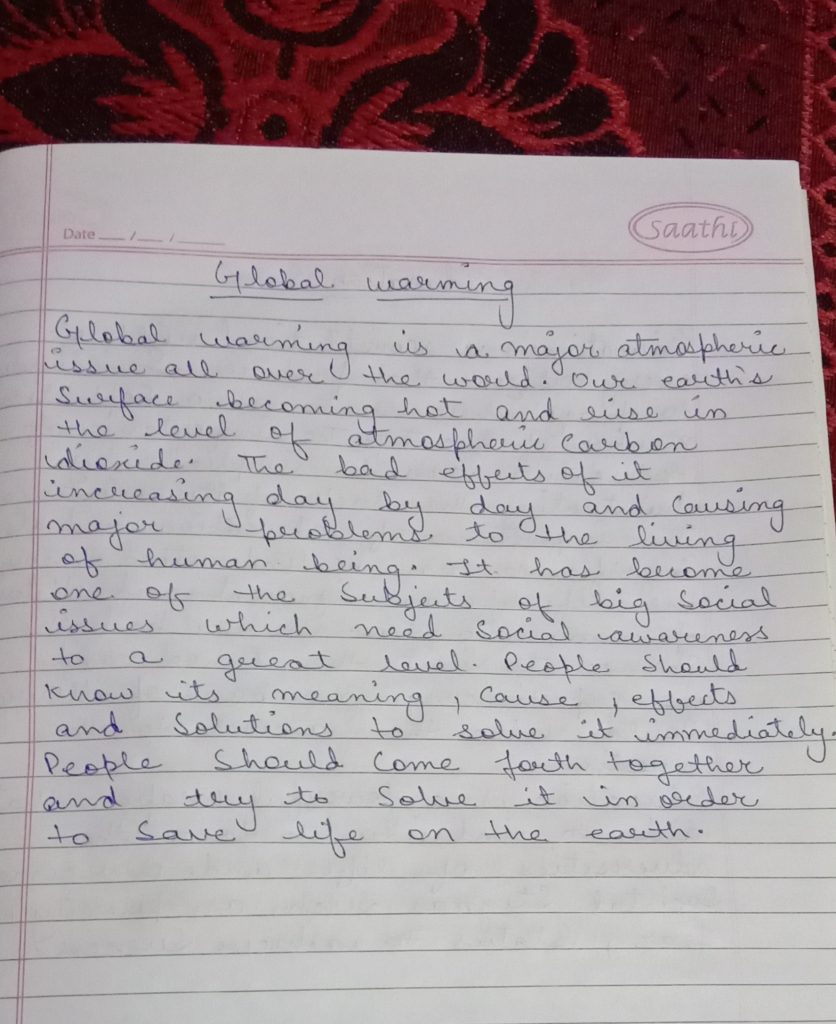 Date __/__/____
Saathi
Global warming
Global warming is a major atmospheric
issue all over the world. Our earth's
Surface becoming hot and rise in
the level of atmospheric carbon
dioxide. The bad effects of it
increasing day by day and causing
major problems to the living
of human being. It has become
one of the Subjects of big Social
issues which need Social awareness
to a great level. People Should
know its meaning, cause, effects
and Solutions to solve it immediately.
People Should come forth together
and try to Solve it in order
to Save life on the earth.